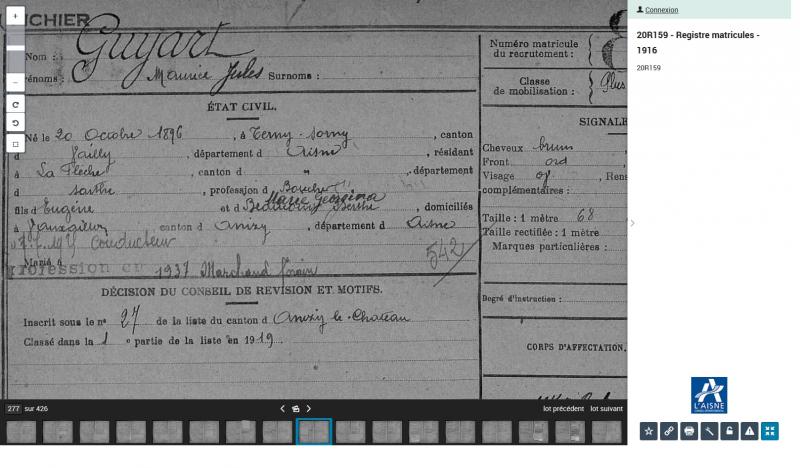 FICHIER
Guyart
Nom :
Prénoms : Maurice Jules Surnoms :
Numéro matricule
du recrutement :
Classe
de mobilisation : Plus
ÉTAT CIVIL.
Né le 20 Octobre 1896, à Terny-Sorny, canton
d Vailly, département d Aisne, résidant
à La Flèche, canton d " , département
d Sarthe, profession d Boucher
Marie Georgina
fils d Eugène et d Berthe, domiciliés
à Vauxaillon, canton d Anizy, département d Aisne
Conducteur
542
Marié à
Profession en 1937 Marchand forain
DÉCISION DU CONSEIL DE REVISION ET MOTIFS.
Inscrit sous le n° 27 de la liste du canton d Anizy-le-Chateau
Classé dans la 1 e partie de la liste en 1919.
SIGNALE
Cheveux brun
Front ord
Visage Rens
complémentaires :
Taille : 1 mètre 68
Taille rectifiée : 1 mètre
Marques particulières :
Degré d'instruction :
CORPS D'AFFECTATION.
277 sur 426
lot précédent lot suivant
Connexion
20R159 - Registre matricules -
1916
20R159
L'AISNE